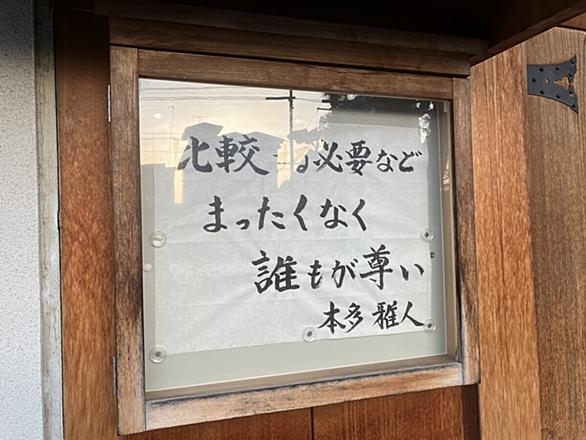 比較する必要など
まったくなく
誰もが尊い
本多 雅人